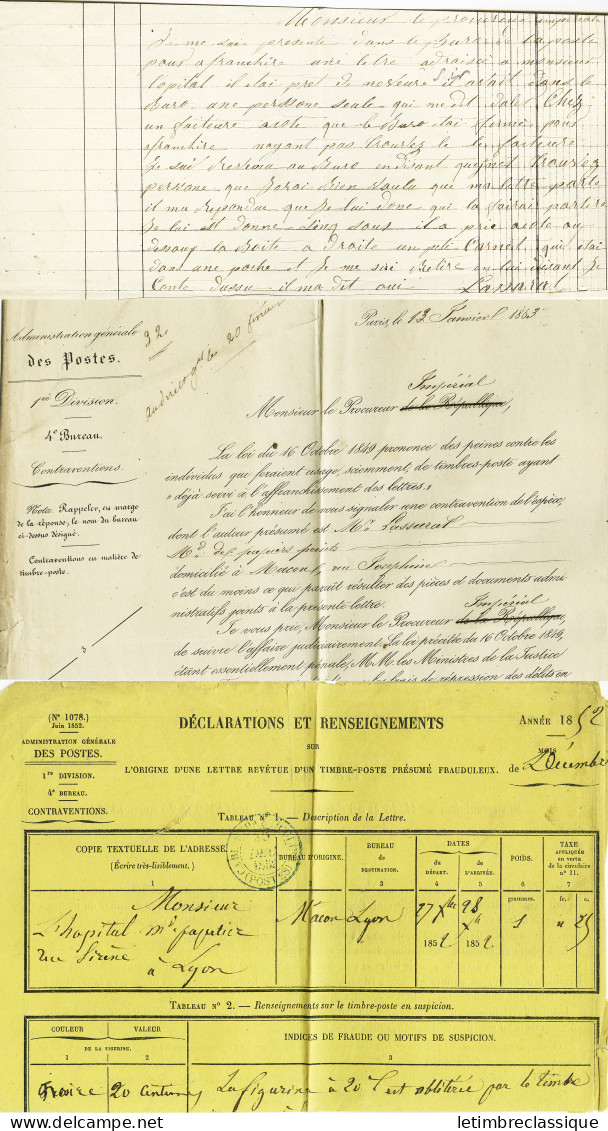 Monsieur le procureur imperial
Je me sui presente dans le Buro de la poste
pour afranchire une letre adraisee a monsieur
Lopital il etai pret de neuf eure il etait dans le
Buro une perssone seule qui me dit Chez
un faiteure acote que le Buro etai ferme pour
afranchire nayant pas trouvez le faiteure
Je sui Reveenu au Buro en disant que
persone que Jorai Bien voulu que ma letre parte
il ma Repondue que Je lui done qui la fairai partire
Je lui et donne sinq sous il a pris acote au
dessous la Boite a droite un peti Carnet qui etai
dans une poche et Je me sui Retire en lui disant Je
Conte dessu il ma dit oui Lassarat
Administration générale
des Postes.
1re Division.
4e Bureau.
Contraventions.
Nota. Rappeler, en marge
de la réponse, le nom du bureau
ci-dessus désigné.
Contraventions en matière de
timbre-poste.
32
Paris, le 13 Janvier 1853
Impérial
Monsieur le Procureur de la République,
La loi du 16 Octobre 1849 prononce des peines contre les
individus qui feraient usage, sciemment, de timbres-poste ayant
"déjà servi à l'affranchissement des lettres."
J'ai l'honneur de vous signaler une contravention de l'espèce,
dont l'auteur présumé est Mr. Lassurat
Md. de papiers peints
domicilié à Macon, rue Joséphine
c'est du moins ce qui paraît résulter des pièces et documents admi-
nistratifs joints à la présente lettre.
Impérial
Je vous prie, Monsieur le Procureur de la République,
de suivre l'affaire judiciairement. La loi précitée du 16 Octobre 1849,
étant essentiellement pénale, MM. les Ministres de la Justice
les frais de répression des délits en
(No 1078.)
Juin 1852.
ADMINISTRATION GÉNÉRALE
DES POSTES.
1re DIVISION.
4e BUREAU.
CONTRAVENTIONS.
DÉCLARATIONS ET RENSEIGNEMENTS
SUR
L'ORIGINE D'UNE LETTRE REVÊTUE D'UN TIMBRE-POSTE PRÉSUMÉ FRAUDULEUX.
ANNÉE 1852
MOIS
de Décembre
TABLEAU No 1. — Description de la Lettre.
COPIE TEXTUELLE DE L'ADRESSE.
(Écrire très-lisiblement.)
1
BUREAU D'ORIGINE.
2
BUREAU
de
DESTINATION.
3
DATES
du
DÉPART.
4
de
L'ARRIVÉE.
5
POIDS.
6
TAXE
APPLIQUÉE
en vertu
de la circulaire
no 11.
7
Monsieur
L'hopital md papetier
rue Sirène
à Lyon
Macon
Lyon
27 Xbre
1852
28 Xbre
1852
grammes.
5
fr. c.
" 25
TABLEAU No 2. — Renseignements sur le timbre-poste en suspicion.
COULEUR
VALEUR
DE LA FIGURINE.
1
2
INDICES DE FRAUDE OU MOTIFS DE SUSPICION.
3
noire
20 centimes
La figurine à 20 c est oblitérée par le timbre
©delcampe.net
letimbreclassique